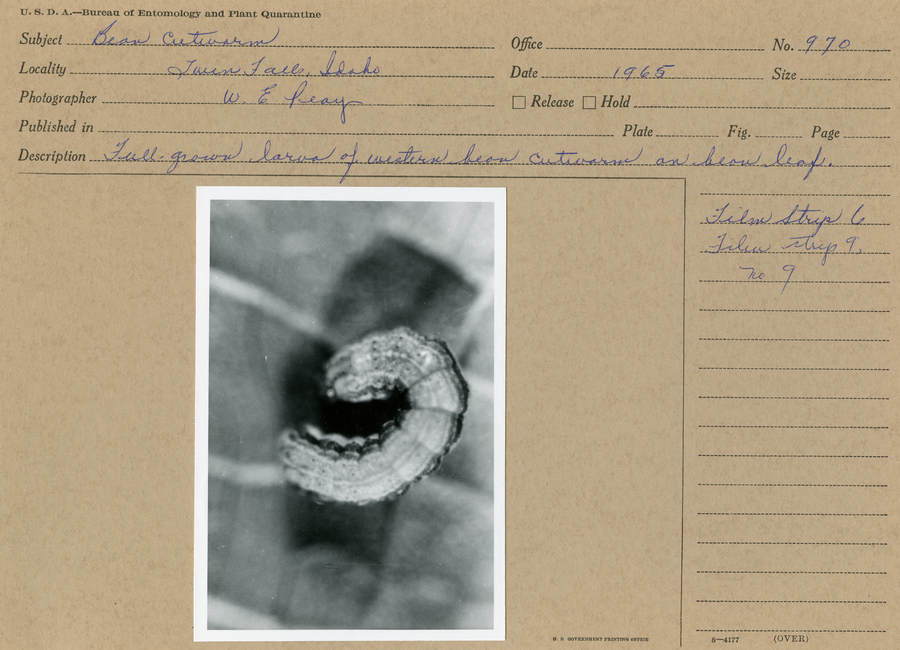 U. S. D. A.—Bureau of Entomology and Plant Quarantine
Subject Bean Cutworm Office No. 970
Locality Twin Falls, Idaho Date 1965 Size
Photographer W. E. Peay Release Hold
Published in Plate Fig. Page
Description Full-grown larva of western bean cutworm on bean leaf.
Film Strip 6
Film strip 9,
no 9
U. S. GOVERNMENT PRINTING OFFICE 8—4177 (OVER)